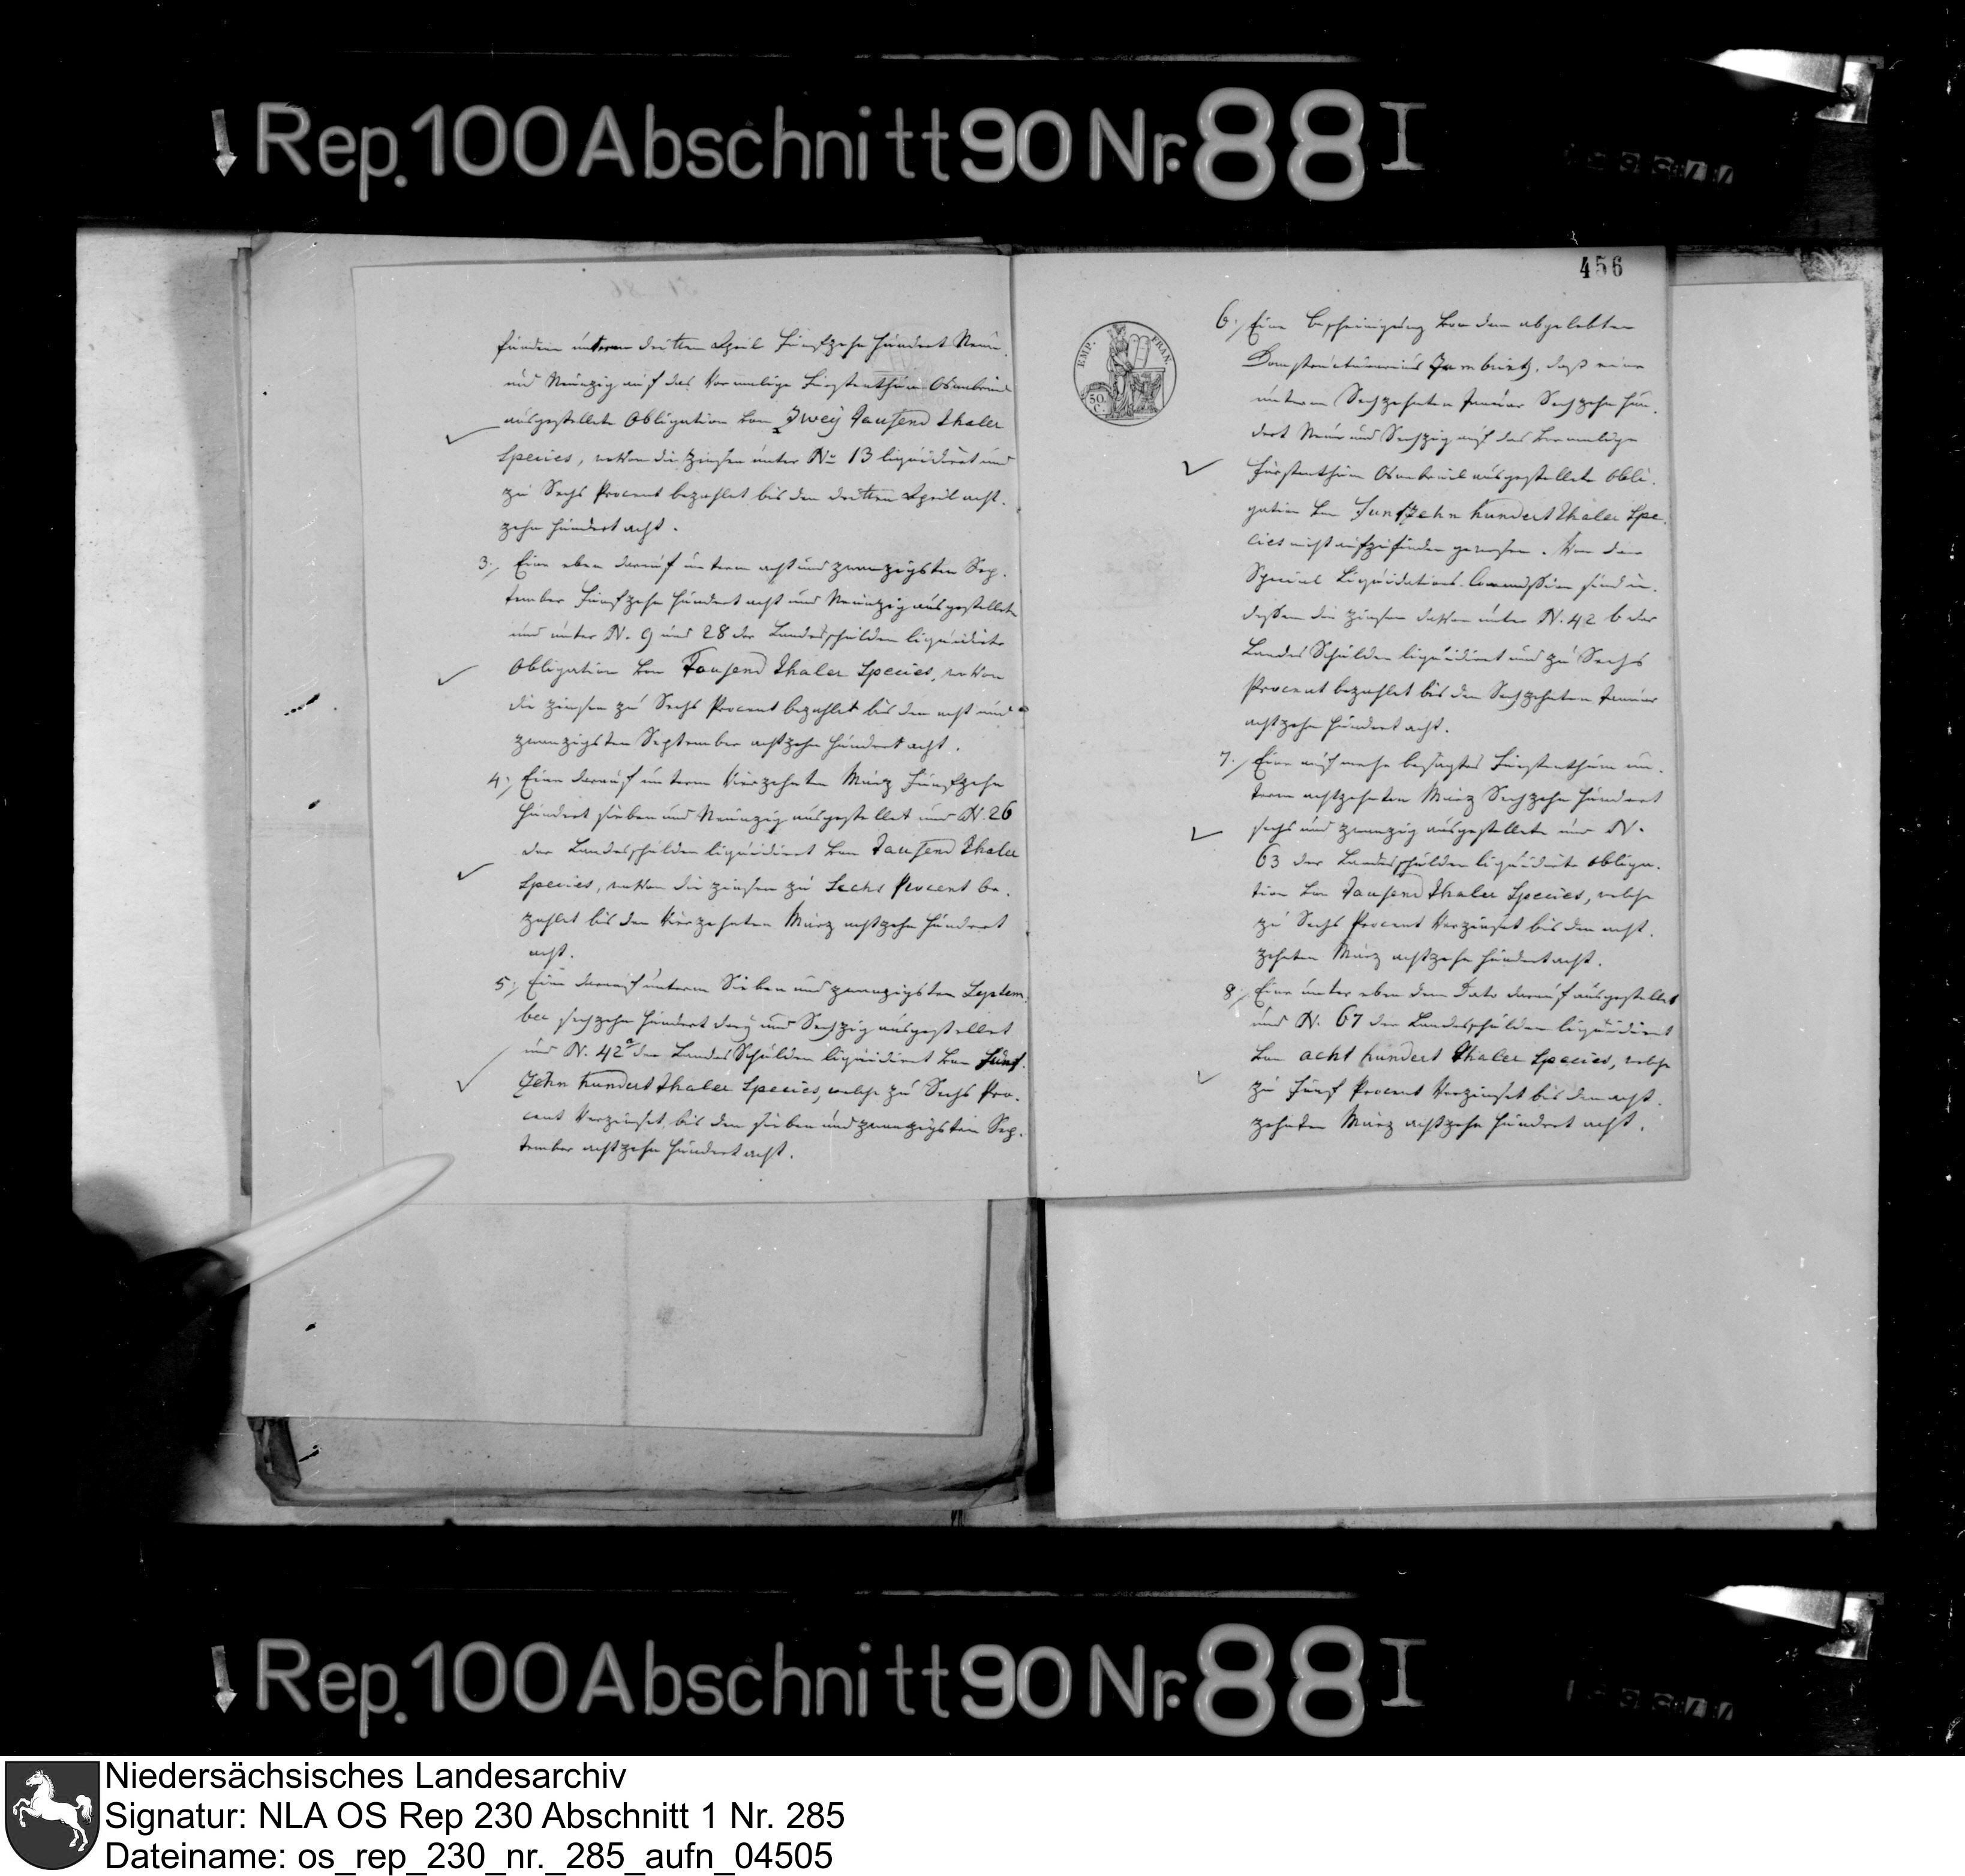 Rep. 100 Abschnitt 90 Nr. 88 I
funden unterm dritten April Funfzehn hundert Neun
und Neunzig auf das Vormalige Fürstenthum Osnabrück
ausgestellete Obligation von Zwey Tausend Thaler
Species, wovon die Zinsen unter No 13 liquidirt und
zu Sechs Procent bezahlet bis den dritten April acht-
zehn hundert acht.
3., Eine eben darauf unterm acht und zwanzigsten Sep-
tember Funfzehn hundert acht und Neunzig ausgestellete
und unter N. 9 und 28 der Landesschulden liquidirte
Obligation von Tausend Thaler Species, wovon
die Zinsen zu Sechs Procent bezahlet bis den acht und
zwanzigsten September achtzehn hundert acht.
4., Eine darauf unterm Vierzehnten März Funfzehn
hundert sieben und Neunzig ausgestellet und N. 26
der Landesschulden liquidirt von Tausend Thaler
Species, wovon die Zinsen zu Sechs Procent be-
zahlet bis den Vierzehnten März achtzehn hundert
acht.
5., Eine darauf unterm Sieben und zwanzigsten Septem-
ber sechzehn hundert drey und Sechzig ausgestellet
und N. 42a der Landes Schulden liquidirt von Funf-
Zehn hundert Thaler Species, welche zu Sechs Pro-
cent Verzinset bis den sieben und zwanzigsten Sep-
tember achtzehn hundert acht.
456
EMP. FRAN.
50 C.
6., Eine Bescheinigung von dem abgelebten
daß eine
unterm Sechzehnten Januar Sechzehn hun-
dert Neun und Sechzig auf das Vormalige
Fürstenthum Osnabrück ausgestellete Obli-
gation von Funfzehn hundert Thaler Spe-
cies nicht aufzufinden gewesen. Von der
Special Liquidations-Commission sind in-
dessen die Zinsen davon unter N. 42 b der
Landes Schulden liquidirt und zu Sechs
Procent bezahlet bis den Sechzehnten Januar
achtzehn hundert acht.
7., Eine auf mehr besagtes Fürstenthum un-
term achtzehnten März Sechzehn hundert
sechs und zwanzig ausgestellete und N.
63 der Landesschulden liquidirte Obliga-
tion von Tausend Thaler Species, welche
zu Sechs Procent Verzinset bis den acht-
zehnten März achtzehn hundert acht.
8., Eine unter eben dem Dato darauf ausgestellet
und N. 67 der Landesschulden liquidirt
von acht hundert Thaler Species, welche
zu Funf Procent Verzinset bis den acht-
zehnten März achtzehn hundert acht.
Rep. 100 Abschnitt 90 Nr. 88 I
Niedersächsisches Landesarchiv
Signatur: NLA OS Rep 230 Abschnitt 1 Nr. 285
Dateiname: os_rep_230_nr._285_aufn_04505